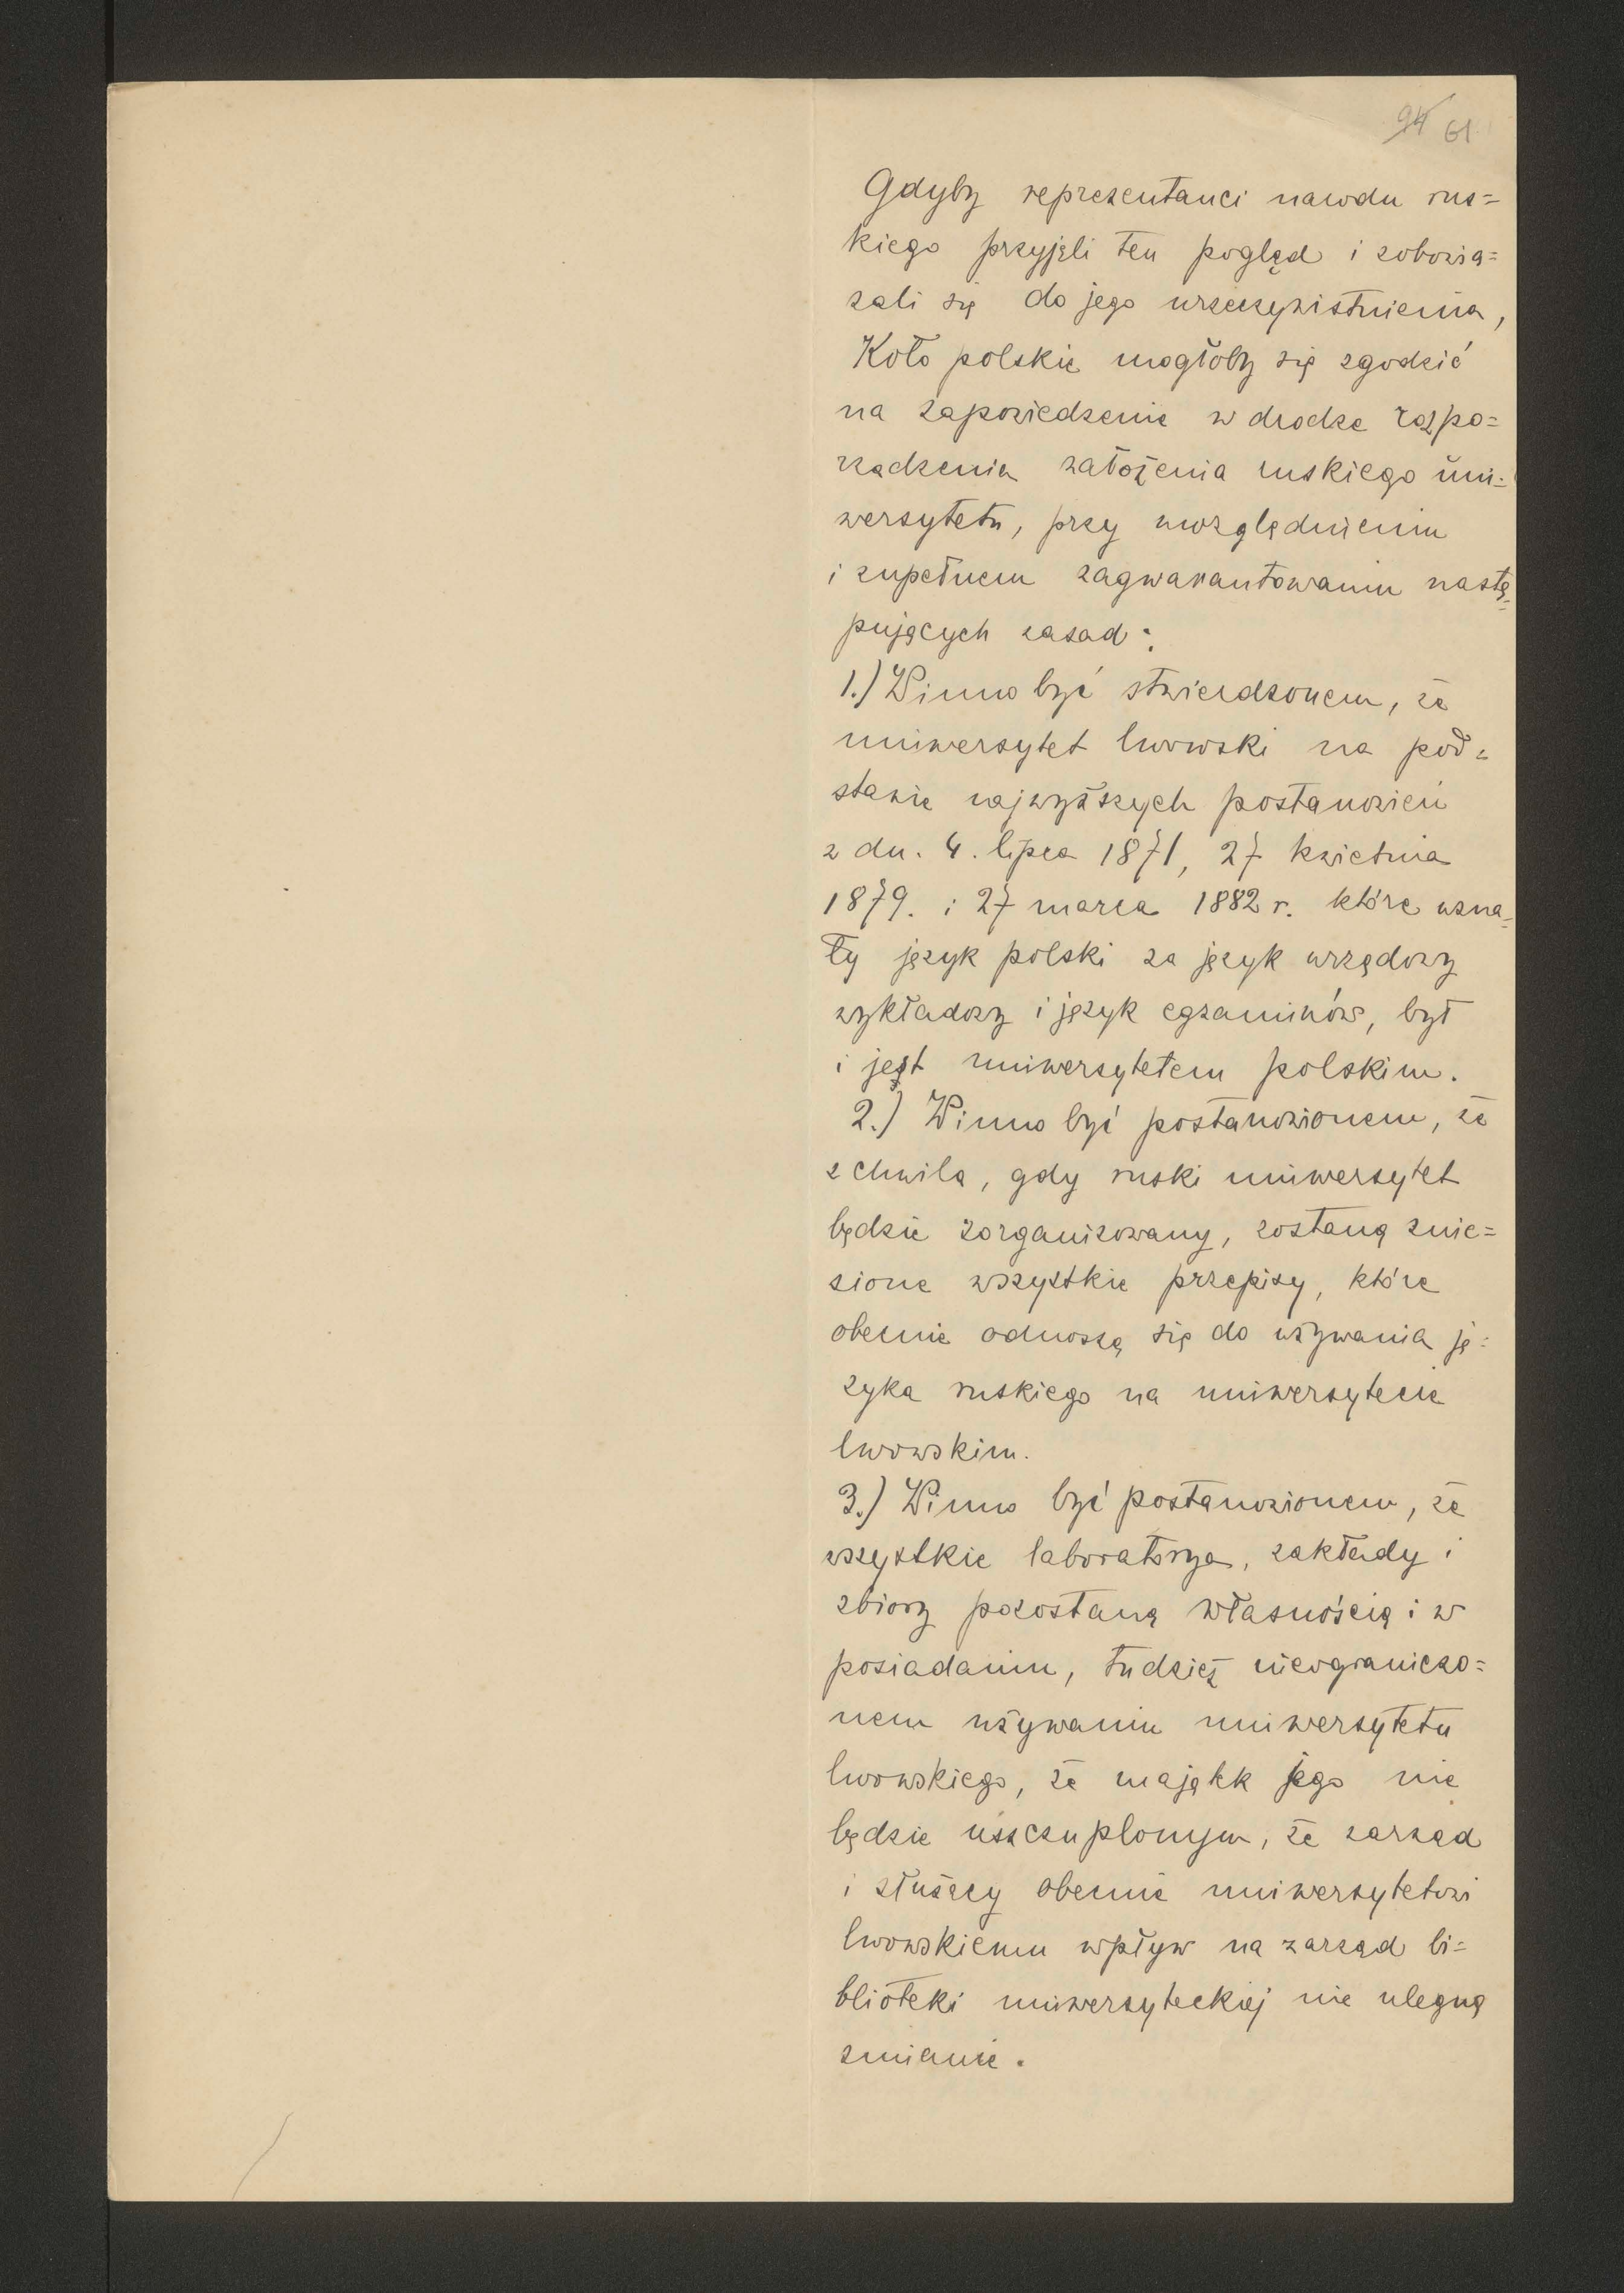 94 61
Gdyby reprezentanci narodu rus=
kiego przyjęli ten pogląd i zobowią=
zali się do jego urzeczywistnienia,
Koło polskie mogłoby się zgodzić
na zapowiedzenie w drodze rozpo=
rządzenia założenia ruskiego uni=
wersytetu, przy uwzględnieniu
i zupełnem zagwarantowaniu nastę=
pujących zasad:
1.) Winno być stwierdzonem, że
uniwersytet lwowski na pod=
stawie najwyższych postanowień
z dn. 4. lipca 1871, 27 kwietnia
1879. i 27 marca 1882 r. które uzna=
ły język polski za język urzędowy
wykładowy i język egzaminów, był
i jest uniwersytetem polskim.
2.) Winno być postanowionem, że
z chwilą, gdy ruski uniwersytet
będzie zorganizowany, zostaną znie=
sione wszystkie przepisy, które
obecnie odnoszą się do używania ję=
zyka ruskiego na uniwersytecie
lwowskim.
3.) Winno być postanowionem, że
wszystkie laboratorya, zakłady i
zbiory pozostaną własnością i w
posiadaniu, tudzież nieograniczo=
nem używaniu uniwersytetu
lwowskiego, że majątek jego nie
będzie uszczuplonym, że zarząd
i służący obecnie uniwersytetowi
lwowskiemu wpływ na zarząd bi=
blioteki uniwersyteckiej nie ulegną
zmianie.